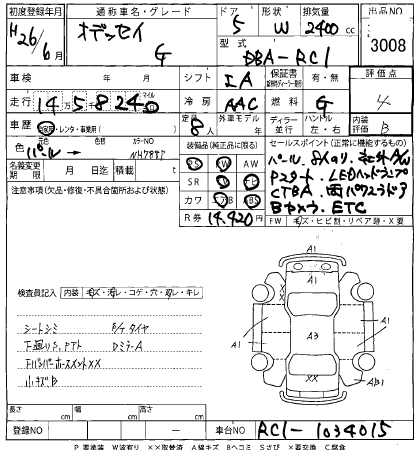 初度登録年月 通称車名・グレード ドア 形状 排気量 出品NO
H26/6月 オデッセイ G 5 W 2400cc 3008
型式 DBA-RC1
車検 年 月 シフト IA 保証書 有・無 評価点
走行 14万5千8240 マイル 冷房 AAC 燃料 G 4
車歴 自家用・レンタ・事業用( ) 定員 8人 外車モデル 年 ディーラー 並行 ハンドル 左・右 内装評価 B
色 元色 パール → 色替 カラーNO NH788P
装備品(純正品に限る) セールスポイント(正常に機能するもの)
名義変更期限 月 日迄 積載 t
PS PW AW
SR ナビ
カワ エアB ABS
R券 14.420円
パール. 8人のり.
Pスタート. LEDヘッドランプ
CTBA. 両パワスラドア
Bカメラ. ETC
FW キズ・ヒビ割・リペア跡・X要
注意事項(欠品・修復・不具合箇所および状態)
検査員記入 内装 キズ・汚レ・コゲ・穴・スレ・キレ
シートシミ タイヤ
DミラーA
小キズ
A1
A1
A1
A3
A1
XX
A1
長さ cm 幅 cm 高さ cm
登録NO ー 車台NO RC1-1034015
P要塗装 W波有り XX取替済 A線キズ Bヘコミ Sさび X要交換 C腐食